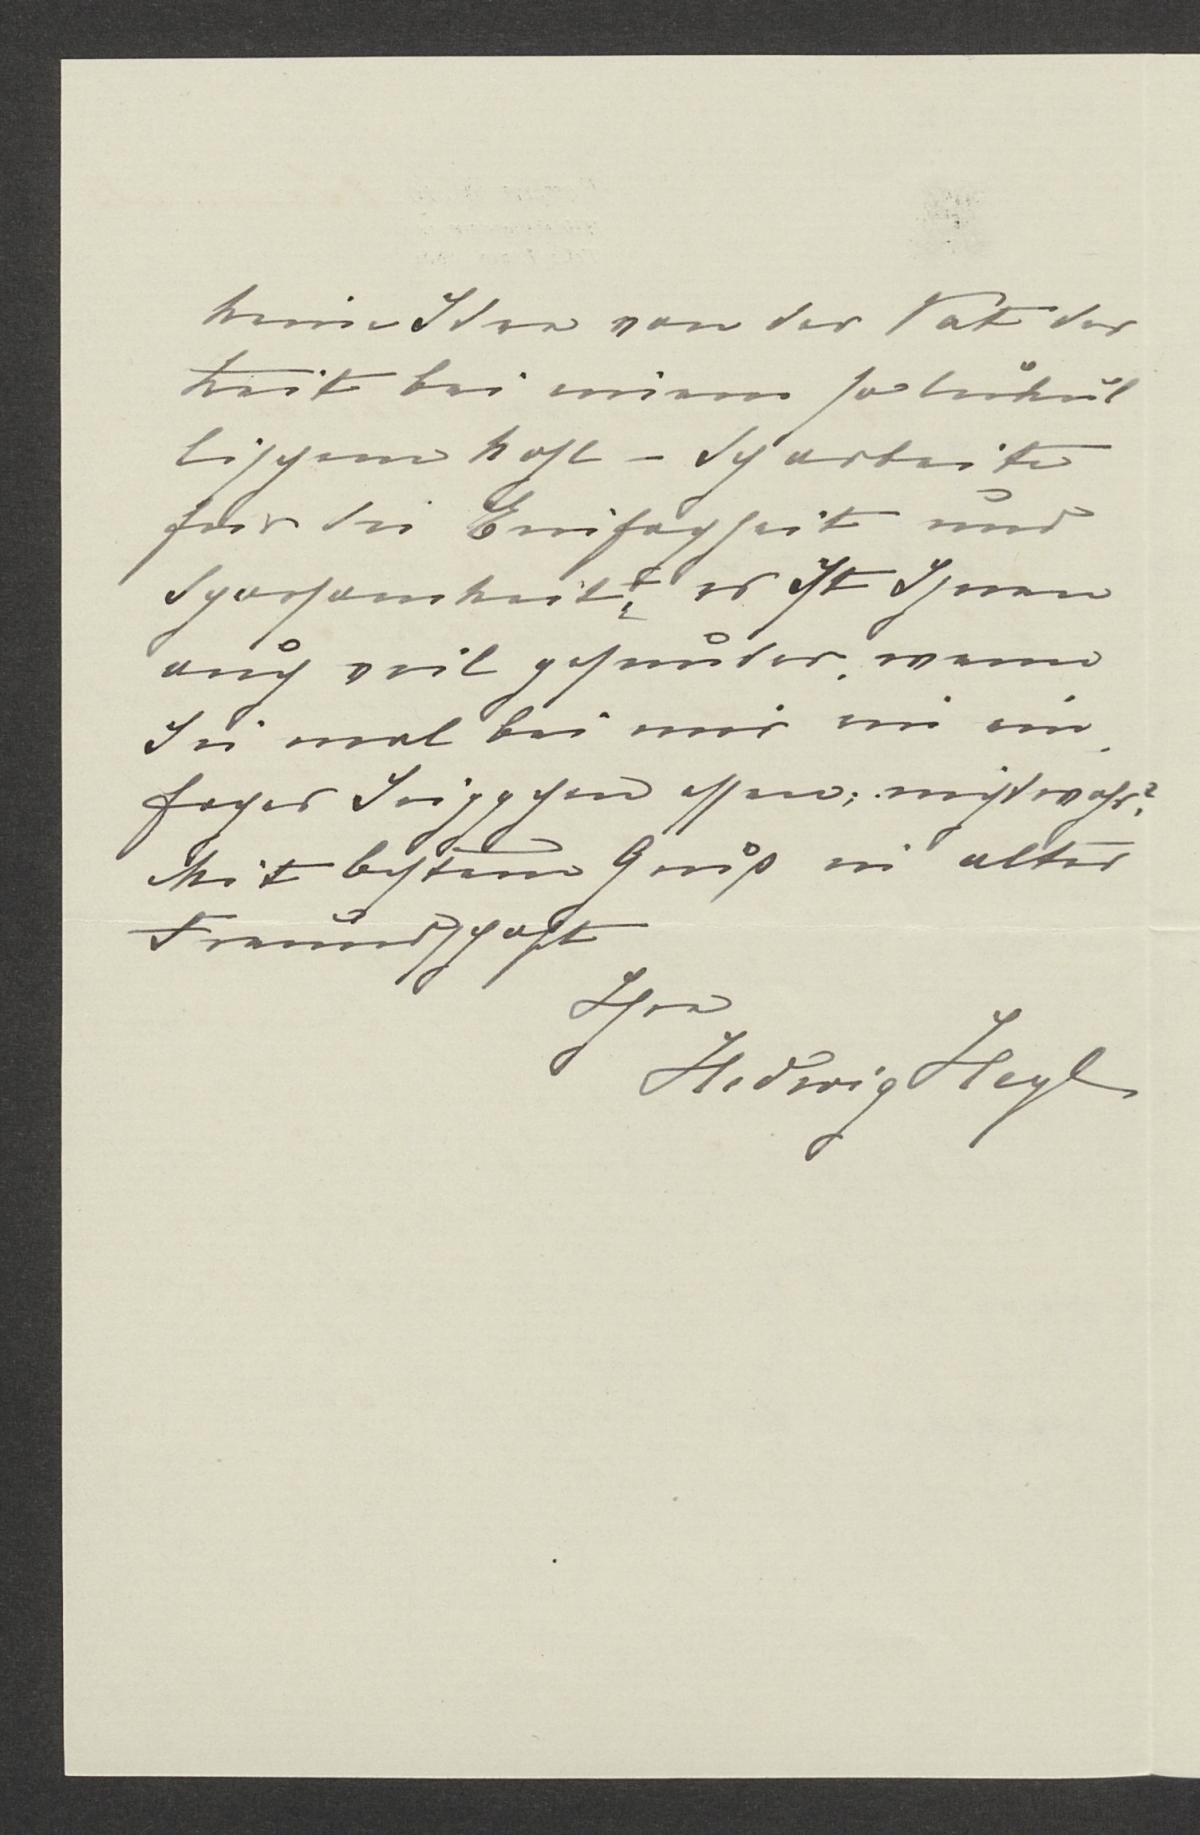 keine Idee von der
keit bei einem so lukul
lischem – Ich arbeite
für die Einfachheit und
Sparsamkeit, es ist Ihnen
auch viel gesunder, wenn
Sie mal bei mir ein ein
faches Süppchen essen; nicht wahr?
Mit bestem Gruß in alter
Freundschaft
Ihre
Hedwig Heyl